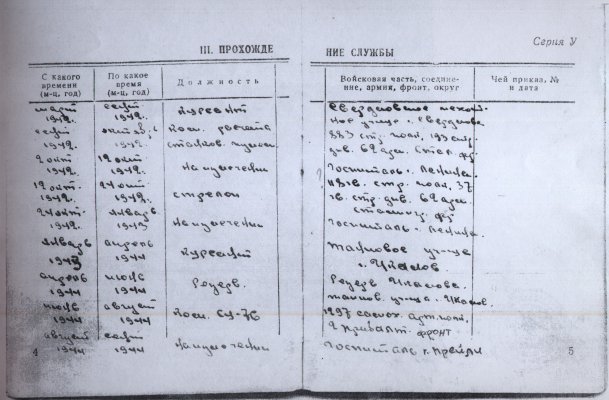 Серия У
III. ПРОХОЖДЕ НИЕ СЛУЖБЫ
С какого времени (м-ц, год) По какое время (м-ц, год) Должность Войсковая часть, соединение, армия, фронт, округ Чей приказ, № и дата
март сент курсант Свердловское пехот.
1942. 1942. ное учище г. Свердловск
сент октябрь ком. расчета 883 стр. полк, 193 стр.
1942. 1942. станков. див. 62 арм. Стал. фр
12 окт. на излечении Госпиталь г. Ленинск
1942. 1942.
12 окт. 24 окт стрелок стр. полк. 37
1942. 1942. гв. стр. див. 62 арм.
24 окт. январь на излечении фр
1942. 1943 Госпиталь г. Ленинск
январь апрель курсант Танковое уч-ще
1943 1944 г. Чкалов
апрель июль Резерв. Резерв Чкаловс.
1944 1944 танков. учища. г. Чкалов.
июль август ком. СУ-76 1297 самох. арт. полк.
1944 1944 2 Прибалт. фронт
август сент на излечении Госпиталь г. Прейли
1944 1944
4 5